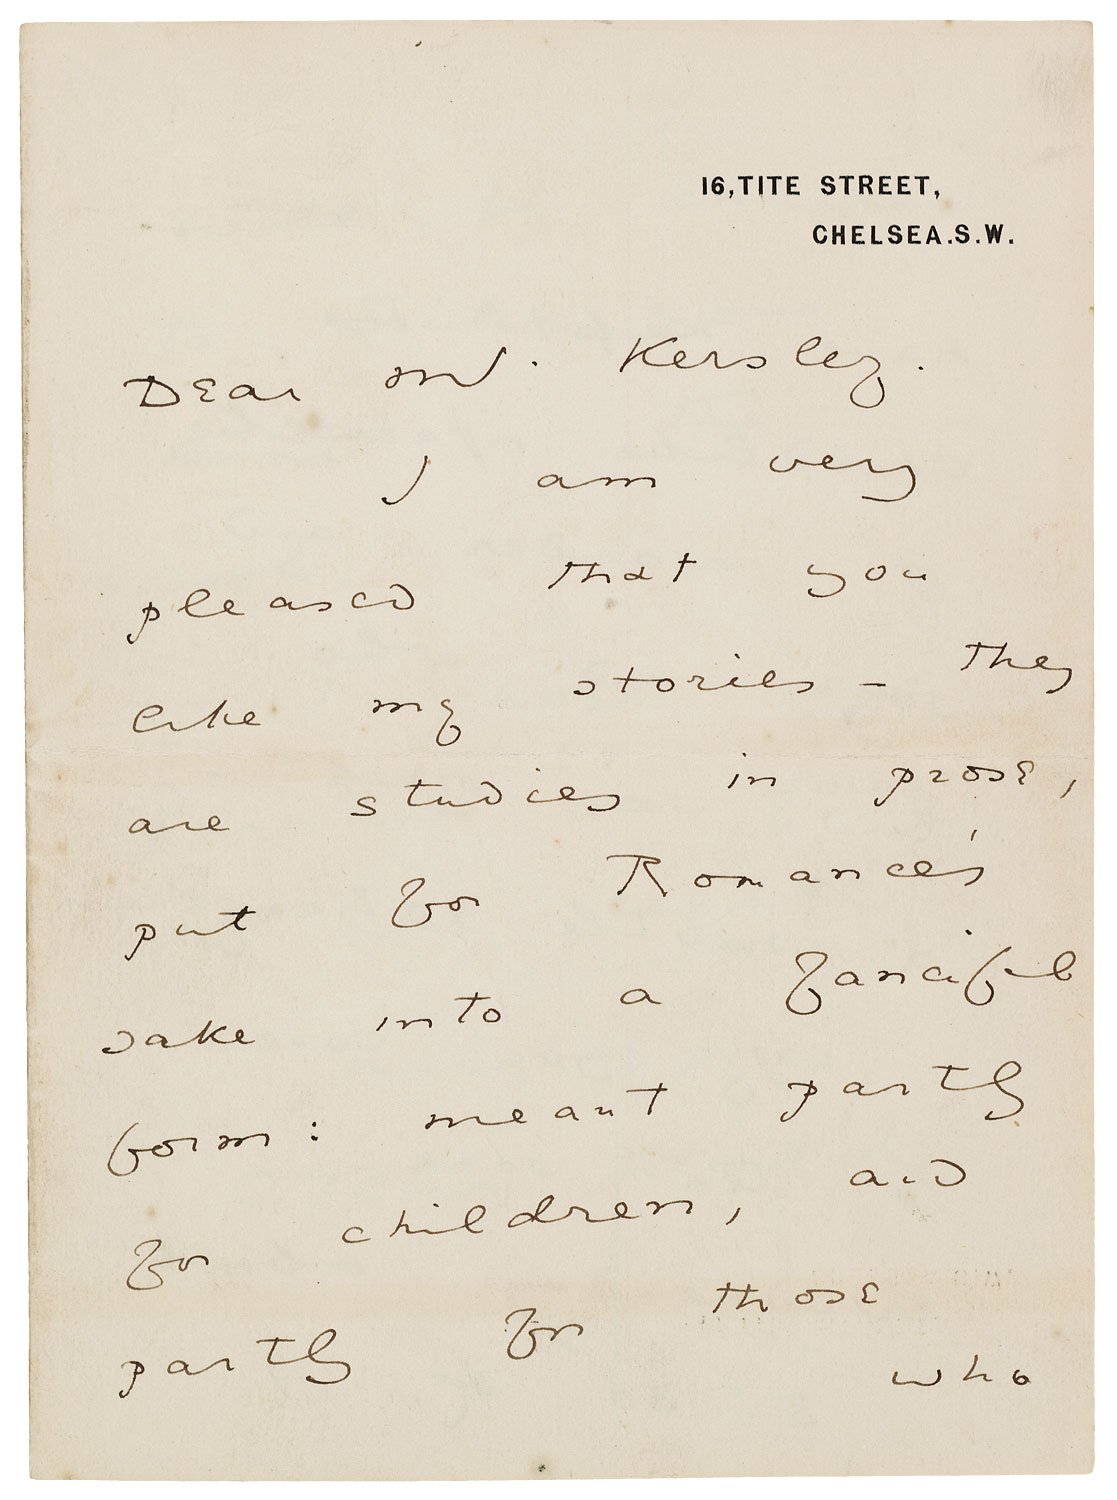 16, TITE STREET,
CHELSEA. S. W.
Dear Mr. Kersley.
I am very
pleased that you
like my stories – They
are studies in prose,
put for Romance's
sake into a fanciful
form: meant partly
for children, and
partly for those
who